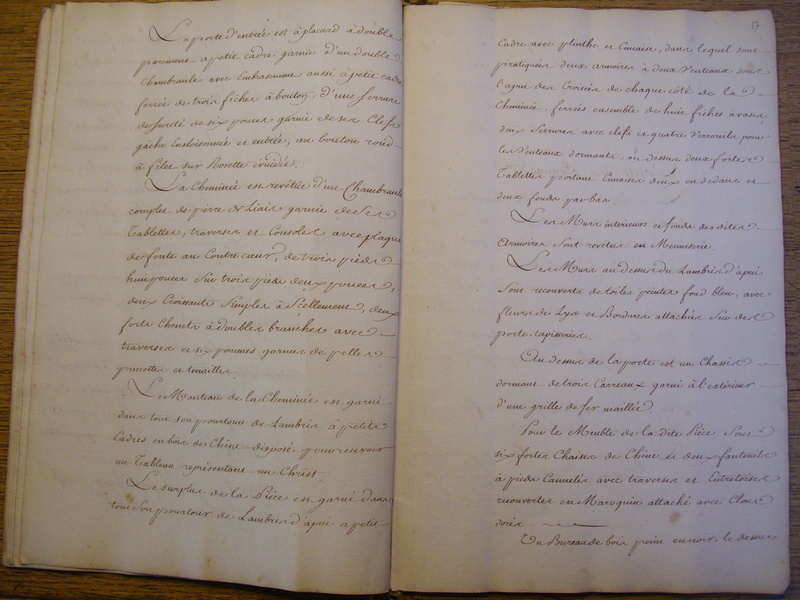 La porte d'entrée est à placard à double
parement a petit cadre garnie d'un double
Chambranle avec Embrasement aussi à petit cadre
ferrée de trois fiches à bouton, d'une serrure
de sureté de six pouces garnie de ses Clefs
gâche Encloisonnée et entrée, un bouton rond
à filet sur Rosette évuidée.
La Cheminée est revêtüe d'une Chambranle
complet de pierre de Liais garnie de Ses
Tablettes, traverses et Consoles avec plaque
de fonte au Contre cœur, de trois pieds
huit pouces Sur trois pieds deux pouces,
deux Croissants Simples à Scellement, deux
forts Chenets à doubles branches avec
traverses et six pommes garnies de pelles
pincettes et tenailles.
Le Manteau de la Cheminée est garni
dans tout son pourtour de Lambris à petits
Cadres en bois de Chêne disposé pour recevoir
un Tableau représentant un Christ
Le surplus de la Pièce est garni dans
tout Son pourtour de Lambris d'apui a petit
17
Cadre avec plinthe et Cimaise, dans lequel sont
pratiquées deux armoires à deux Venteaux sous
l'apui des Croisées de chaque côté de la
Cheminée, ferrées ensemble de huit fiches à vases
deux Serrures avec clefs et quatre Verrouils pour
les Venteaux dormants, au dessus deux fortes
Tablettes portant Cimaises deux en dedans et
deux fonds par bas.
Les Murs intérieurs et fonds des dites
Armoires Sont revêtus en Menuiserie.
Les Murs au dessus du Lambris d'apui
Sont recouverts de toiles peintes fond bleu, avec
fleurs de Lys et Bordures attachées Sur des
porte-tapisseries.
Au dessus de la porte est un Chassis
dormant de trois Carreaux garni à l'extérieur
d'une grille de fer maillé
Pour le Meuble de la dite Pièce Sont
six fortes Chaises de Chêne et deux fauteuils
à pieds Cannelés avec traverses et Entretoises
recouvertes en Maroquin attaché avec Clous
dorés
Un Bureau de bois peint en noir, le dessus